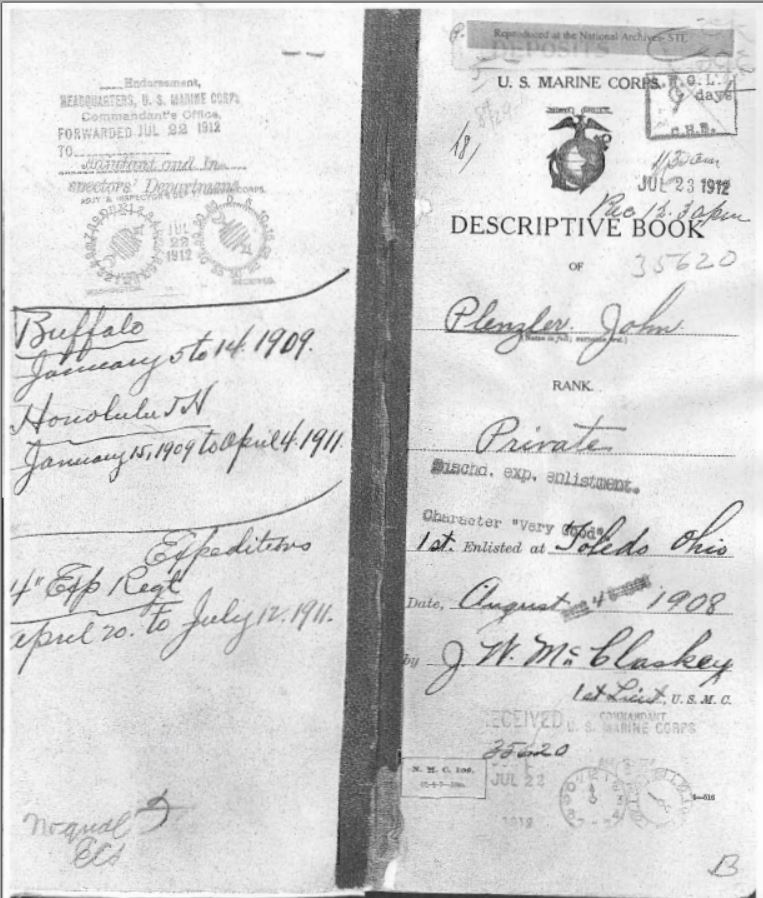 Endorsement,
HEADQUARTERS, U. S. MARINE CORPS
Commandant's Office,
FORWARDED JUL 22 1912
TO
spectors' Department
JUL
22
1912
WASHINGTON
RECEIVED
Buffalo
January 5 to 14. 1909.
Honolulu T H
January 15, 1909 to April 4. 1911
Expeditions
4" Exp Regt
april 20. to July 12. 1911.
No qual
Reproduced at the National Archives- STL
DEPOSITS
U. S. MARINE CORPS
days
C.H.B.
JUL 23 1912
Rec 12.30 pm
DESCRIPTIVE BOOK
OF
35620
Plenzler. John.
(Name in full; surname first.)
RANK.
Private
Dischd. exp. enlistment.
Character "Very Good"
1st. Enlisted at Toledo Ohio
Date, August 4 1908
by J. W. McClaskey
1st Lieut, U. S. M. C.
RECEIVED
COMMANDANT
U. S. MARINE CORPS
35620
N. M. C. 100.
JUL 22
1912
4—516
B